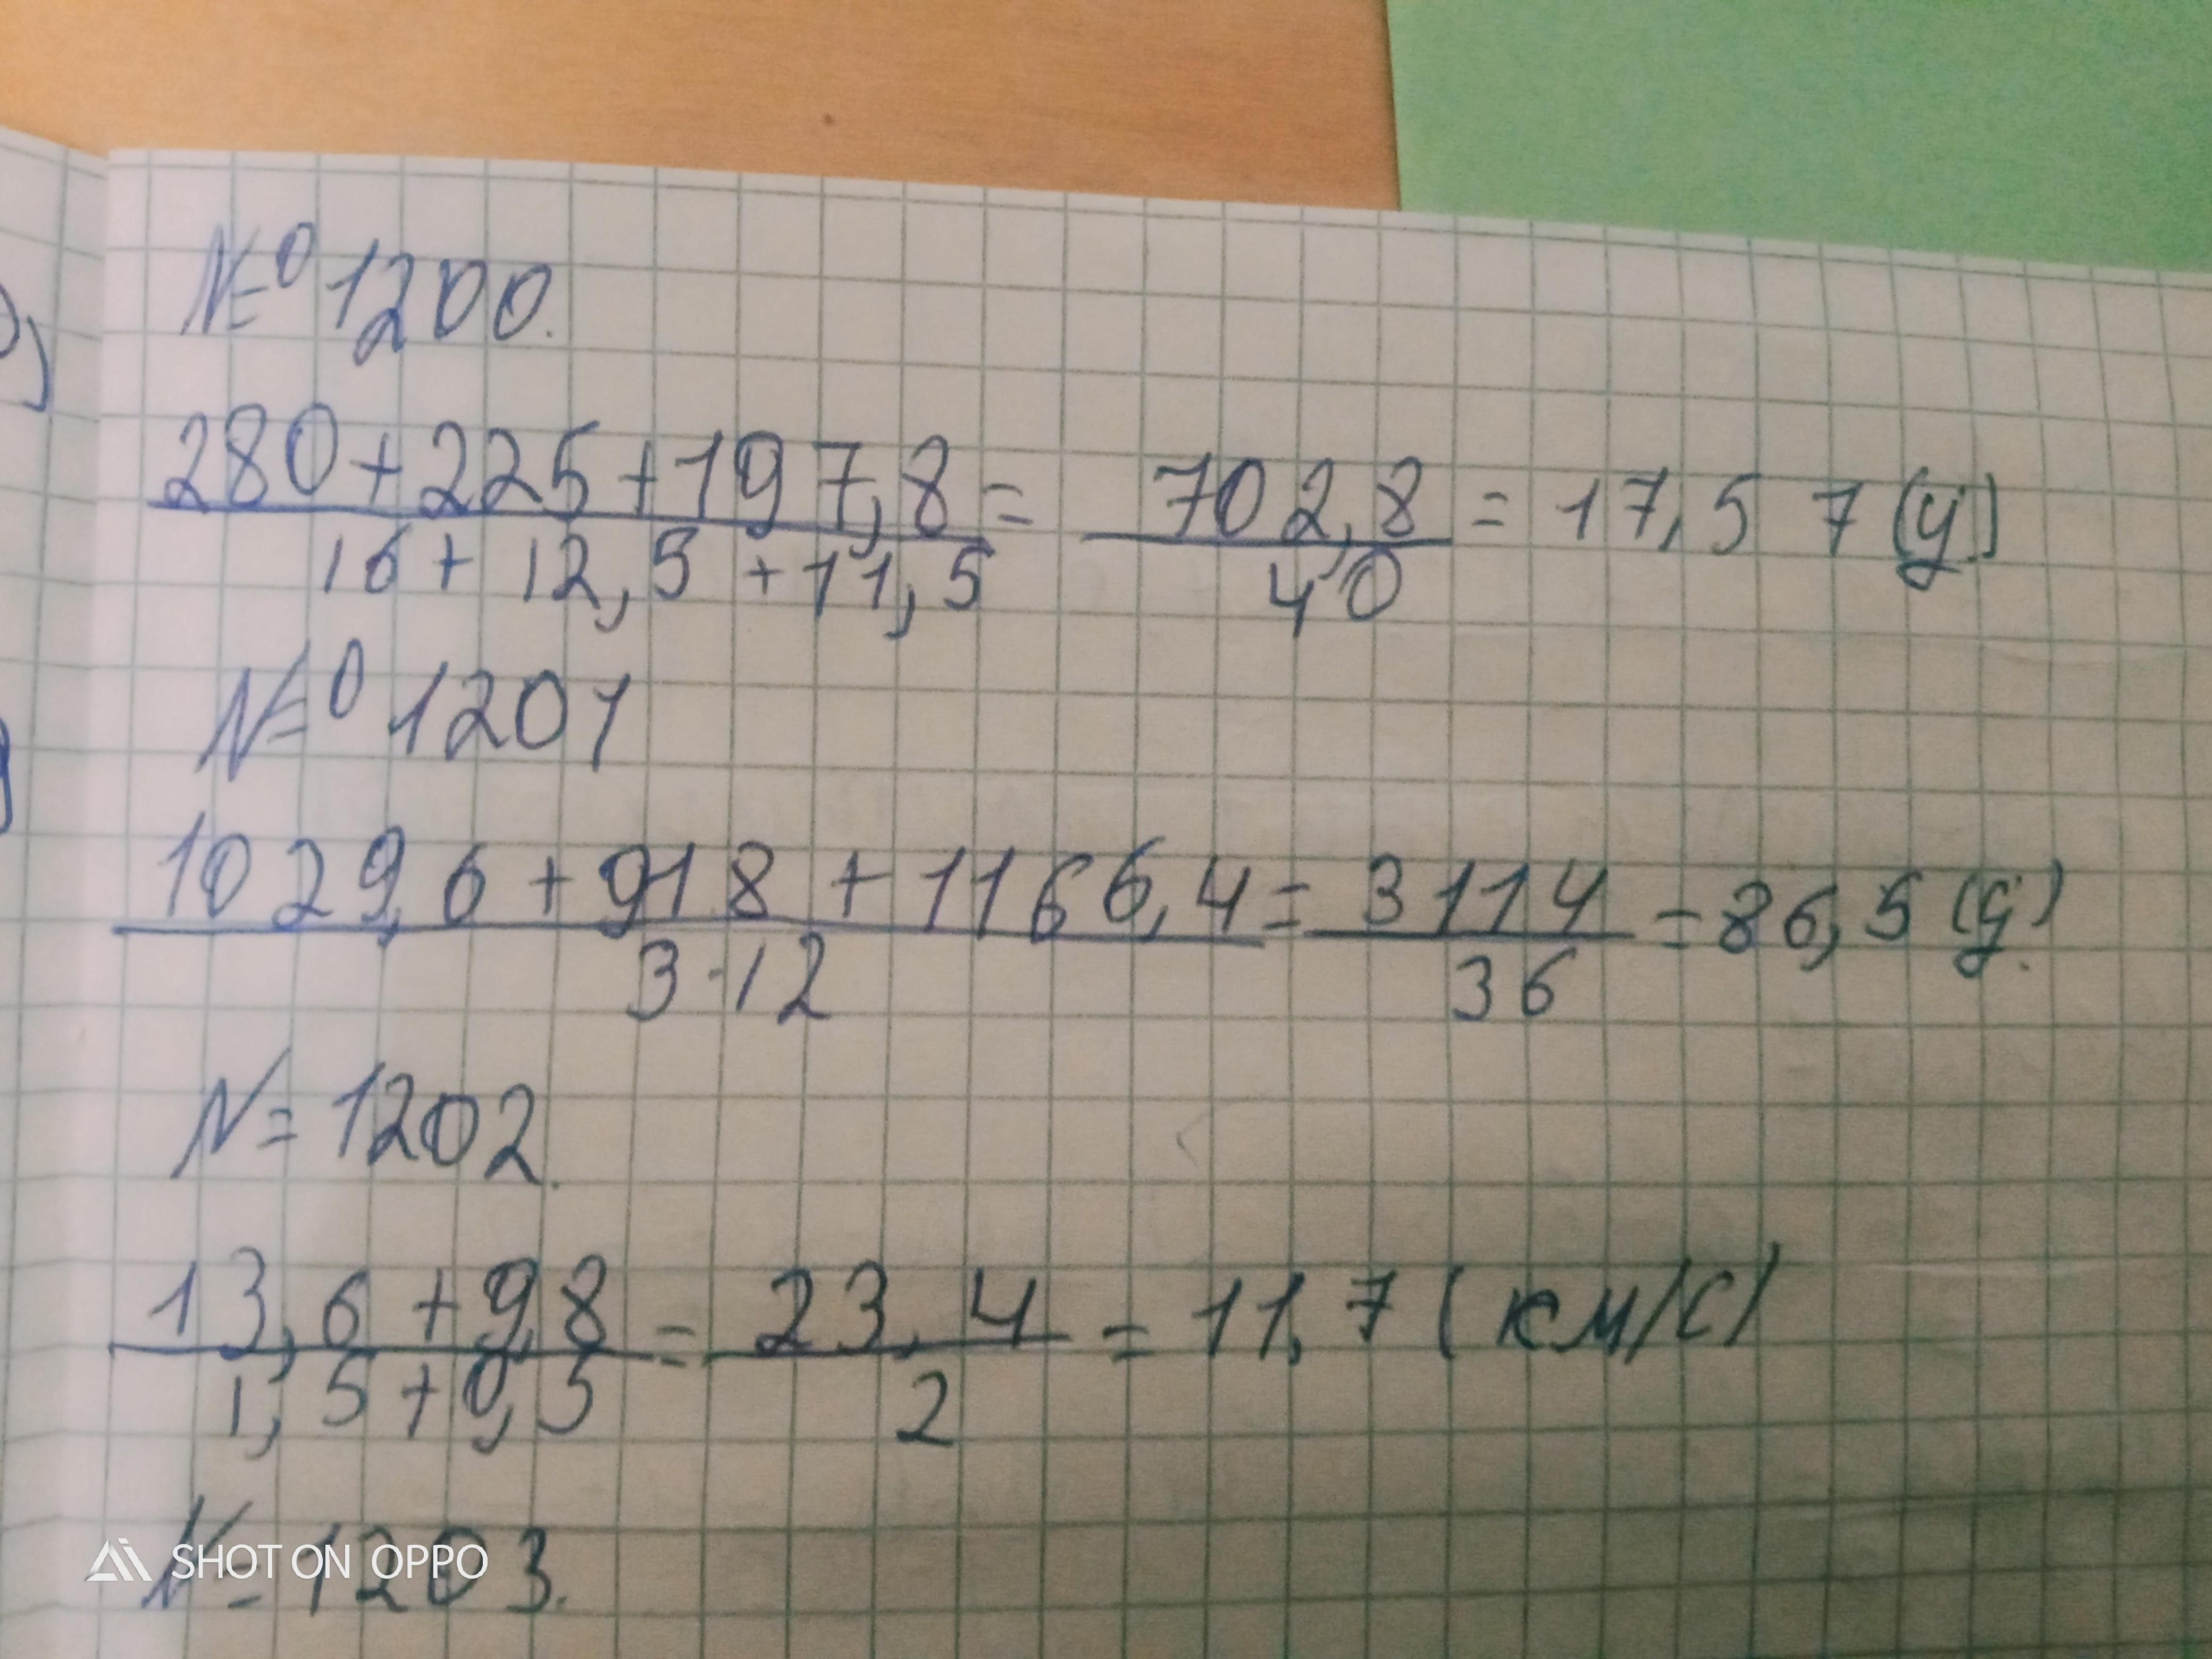 № 1200.
280+225+197,8 = 702,8 = 17,57 (ц)
16 + 12,5 + 11,5 40
№ 1201
1029,6 + 918 + 1166,4 = 3114 = 86,5 (ц)
3·12 36
N= 1202.
13,6 + 9,8 = 23,4 = 11,7 (км/с)
1,5 + 0,5 2
N= 1203.
SHOT ON OPPO